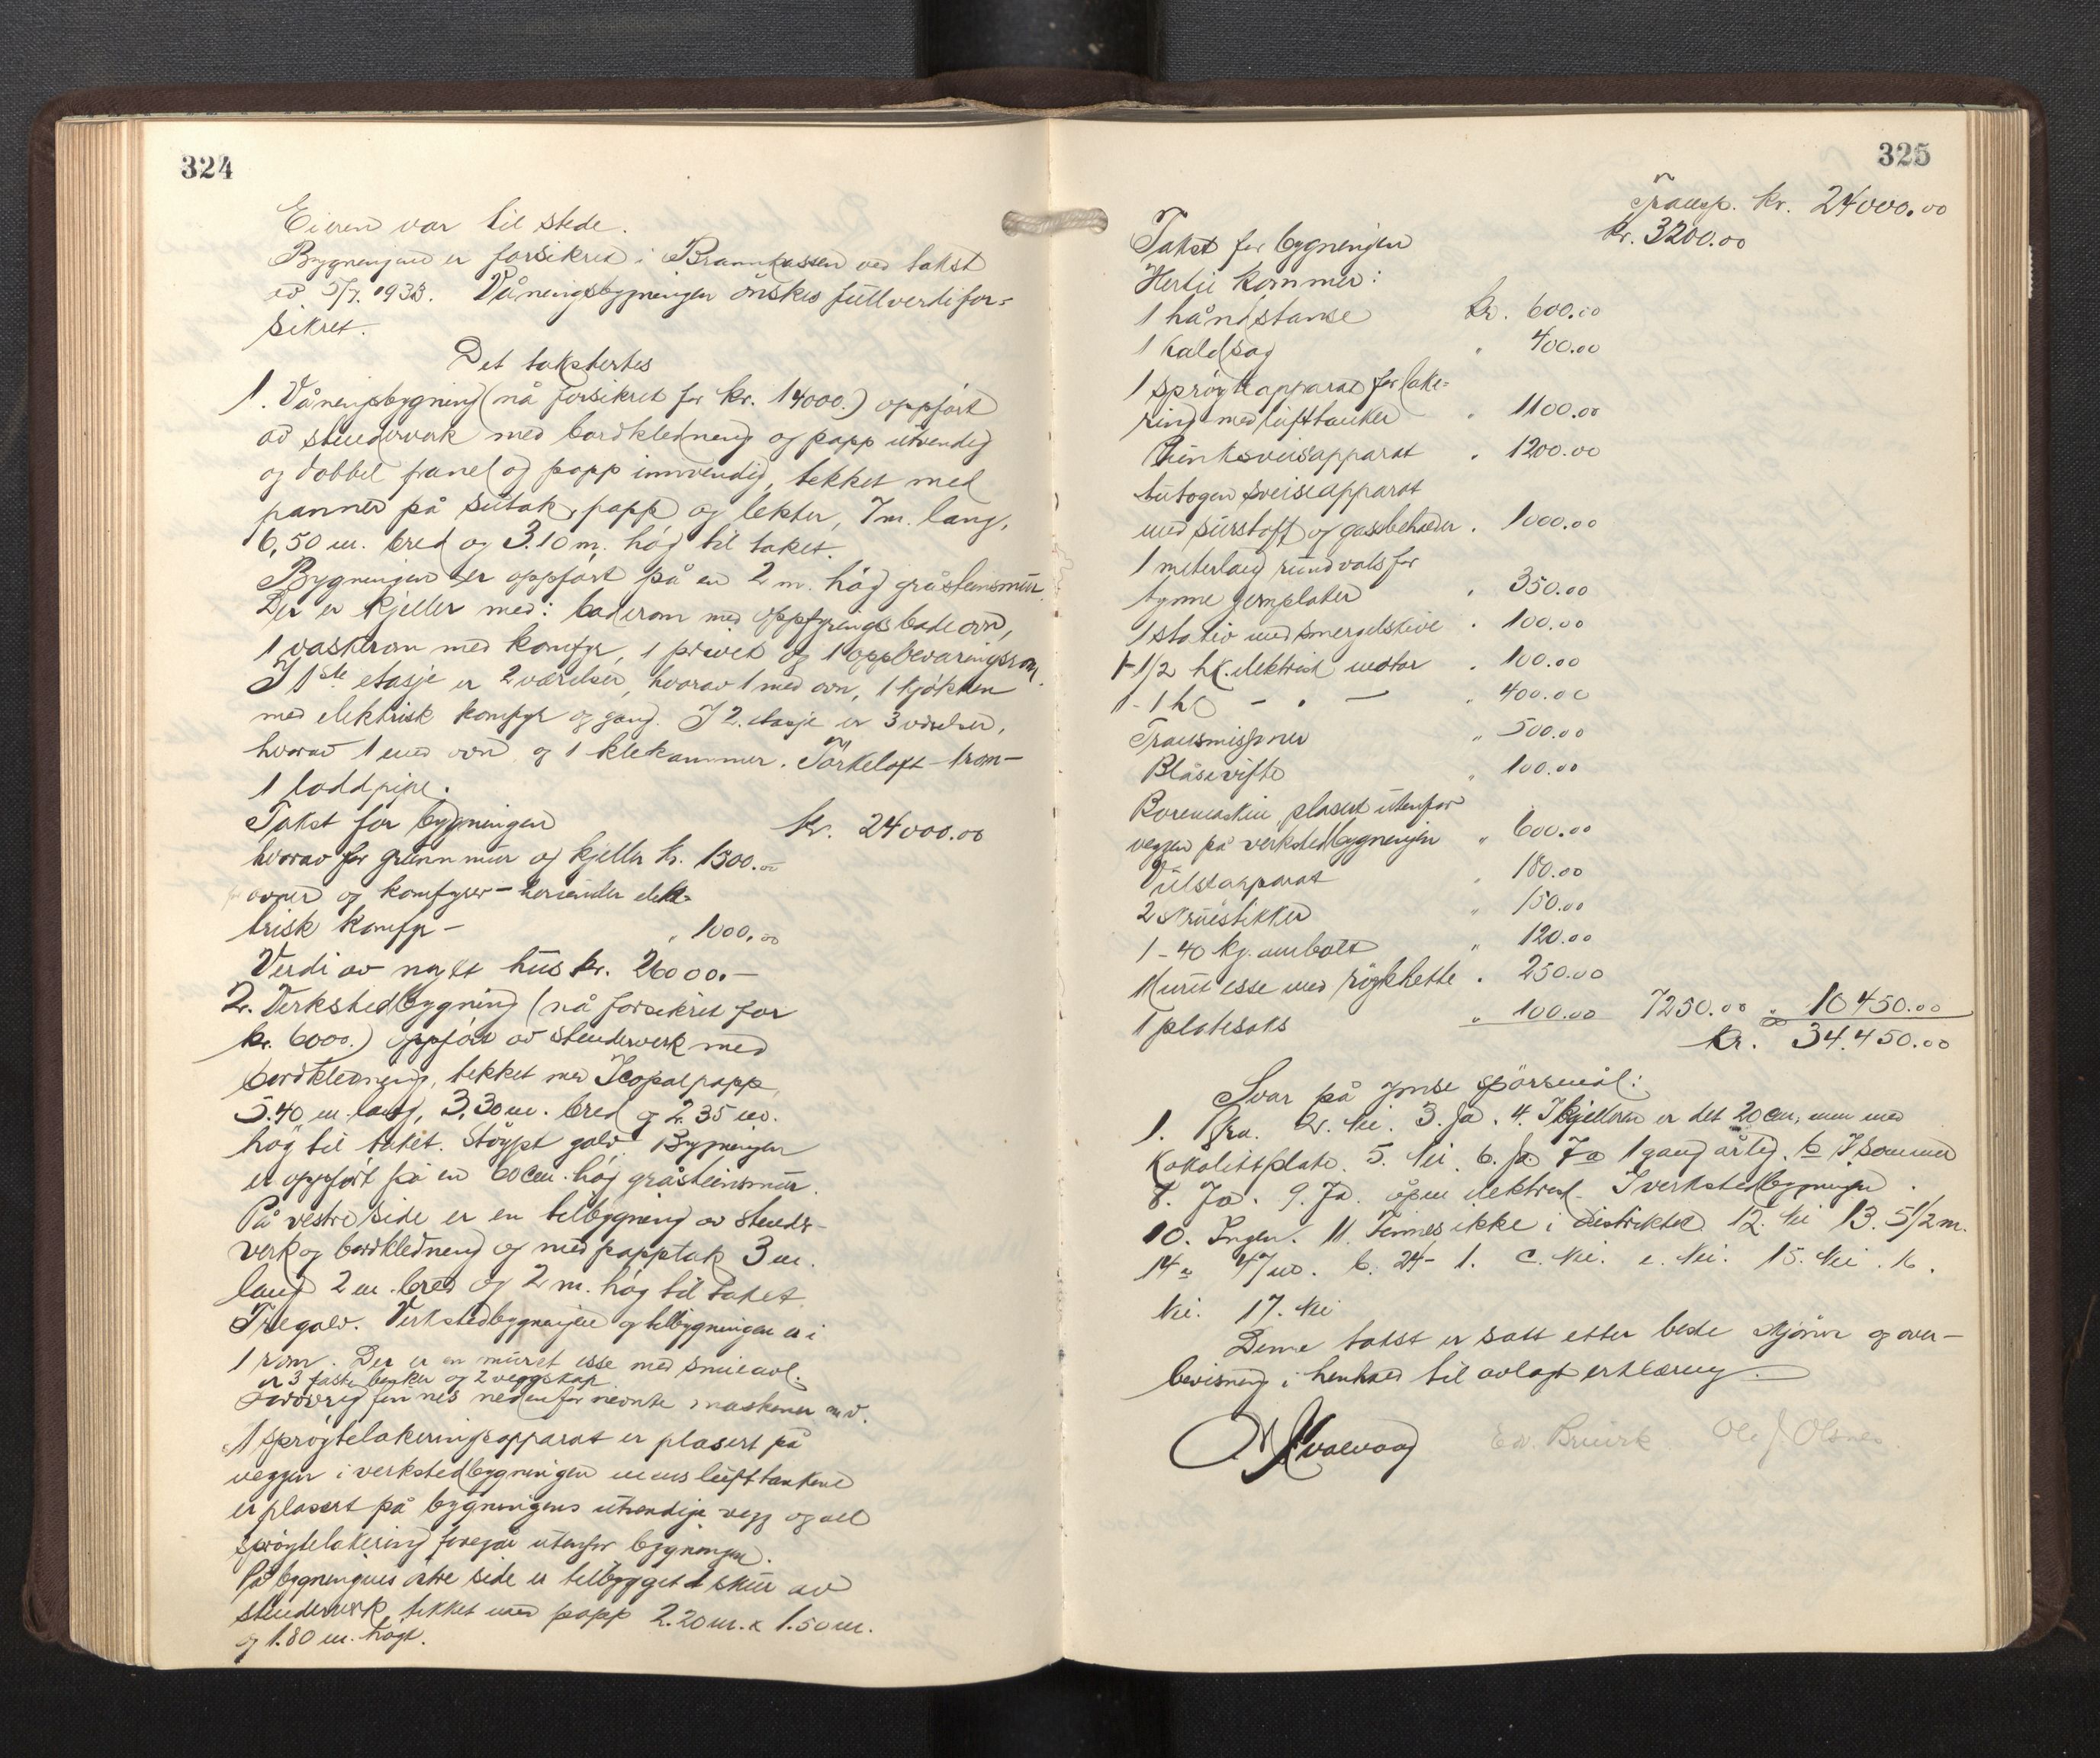 324
Eieren var til stede.
Bygningene er forsikret i Brannkassen ved takst
av 5/7. 1938. Våningsbygningen önskes fullverdifor-
sikret.
Det takstertes
1. Våningsbygning (nå forsikret for kr. 14000.) oppfört
av stenderverk med bordkledning og papp utvendig
og dobbel panel og papp innvendig, tekket med
panner på sutak, papp og lekter, 7 m. lang,
6,50 m. bred og 3.10 m. hög til taket.
Bygningen er oppfört på en 2 m. hög gråsteinsmur.
Der er kjeller med: baderom med oppfyringsbadeovn,
1 vaskerom med komfyr, 1 privet og 1 oppbevaringsrom.
I 1ste etasje er 2 værelser, hvorav 1 med ovn, 1 kjökken
med elektrisk komfyr og gang. I 2. etasje er 3 værelser,
hvorav 1 med ovn og 1 klekammer. Törkeloft – 1 rom –
1 loddpipe.
Takst for bygningen kr. 24000.00
hvorav for grunnmur og kjeller kr. 1300.00
for ovner og komfyrer – herunder elek-
trisk komfyr – " 1000.00
Verdi av nytt hus kr. 26000.–
2. Verkstedbygning (nå forsikret for
kr. 6000.) oppfört av stenderverk med
bordkledning, tekket med Icopalpapp,
5.40 m. lang, 3.30 m. bred og 2.35 m.
hög til taket. Stöypt golv. Bygningen
er oppfört på en 60 cm. hög gråsteinsmur.
På vestre side er en tilbygning av stender-
verk og bordkledning og med papptak 3 m.
lang 2 m. bred og 2 m. hög til taket.
Tregolv. Verkstedbygningen og tilbygningen er i
1 rom. Der er en muret esse med smieavl.
er 3 faste benker og 2 veggskap
Forövrig finnes nedenfor nevnte maskiner m.v.
1 spröytelakeringsapparat er plasert på
veggen i verkstedbygningen mens lufttankene
er plasert på bygningens utvendige vegg og all
spröytelakering foregår utenfor bygningen.
På bygningens östre side er tilbygget 1 skur av
stenderverk tekket med papp 2.20 m. x 1.50 m.
og 1.80 m. högt.
325
Transp. kr. 24000.00
Takst for bygningen kr. 3200.00
Hertil kommer:
1 håndstanse kr. 600.00
1 kaldsag " 400.00
1 spröyteapparat for lake-
ring med lufttanker " 1100.00
Punktsveisapparat " 1200.00
autogen sveiseapparat
med surstoff og gassbeholder " 1000.00
1 meterlang rundvals for
tynne jernplater " 350.00
1 stativ med smergelskive " 100.00
1 – 1/2 hk. elektrisk motor " 100.00
1 – 1 hk – " – " 400.00
Transmisjoner " 500.00
Blåsevifte " 100.00
Boremaskin plasert utenfor
veggen på verkstedbygningen " 600.00
Vulstapparat " 180.00
2 skruestikker " 150.00
1 – 40 kg. ambolt " 120.00
Muret esse med röykhette " 250.00
1 platesaks " 100.00 7250.00 " 10450.00
kr. 34.450.00
Svar på ymse spörsmål:
1. Bra. 2. Nei. 3. Ja. 4. I kjelleren er det 20 cm. mur med
Kokolittplate. 5. Nei. 6. Ja. 7a 1 gang årlig. b I sommer
8. Ja. 9. Ja. åpen elektrisk I verkstedbygningen.
10. Ingen. 11. Finnes ikke i distriktet 12. Nei 13. 5 1/2 m.
14 a 47 m. b. 24 – 1. c. Nei. e. Nei. 15. Nei. 16.
Nei. 17. Nei
Denne takst er satt etter beste skjönn og over-
bevisning i henhold til avlagt erklæring.
Ole J Olsnes